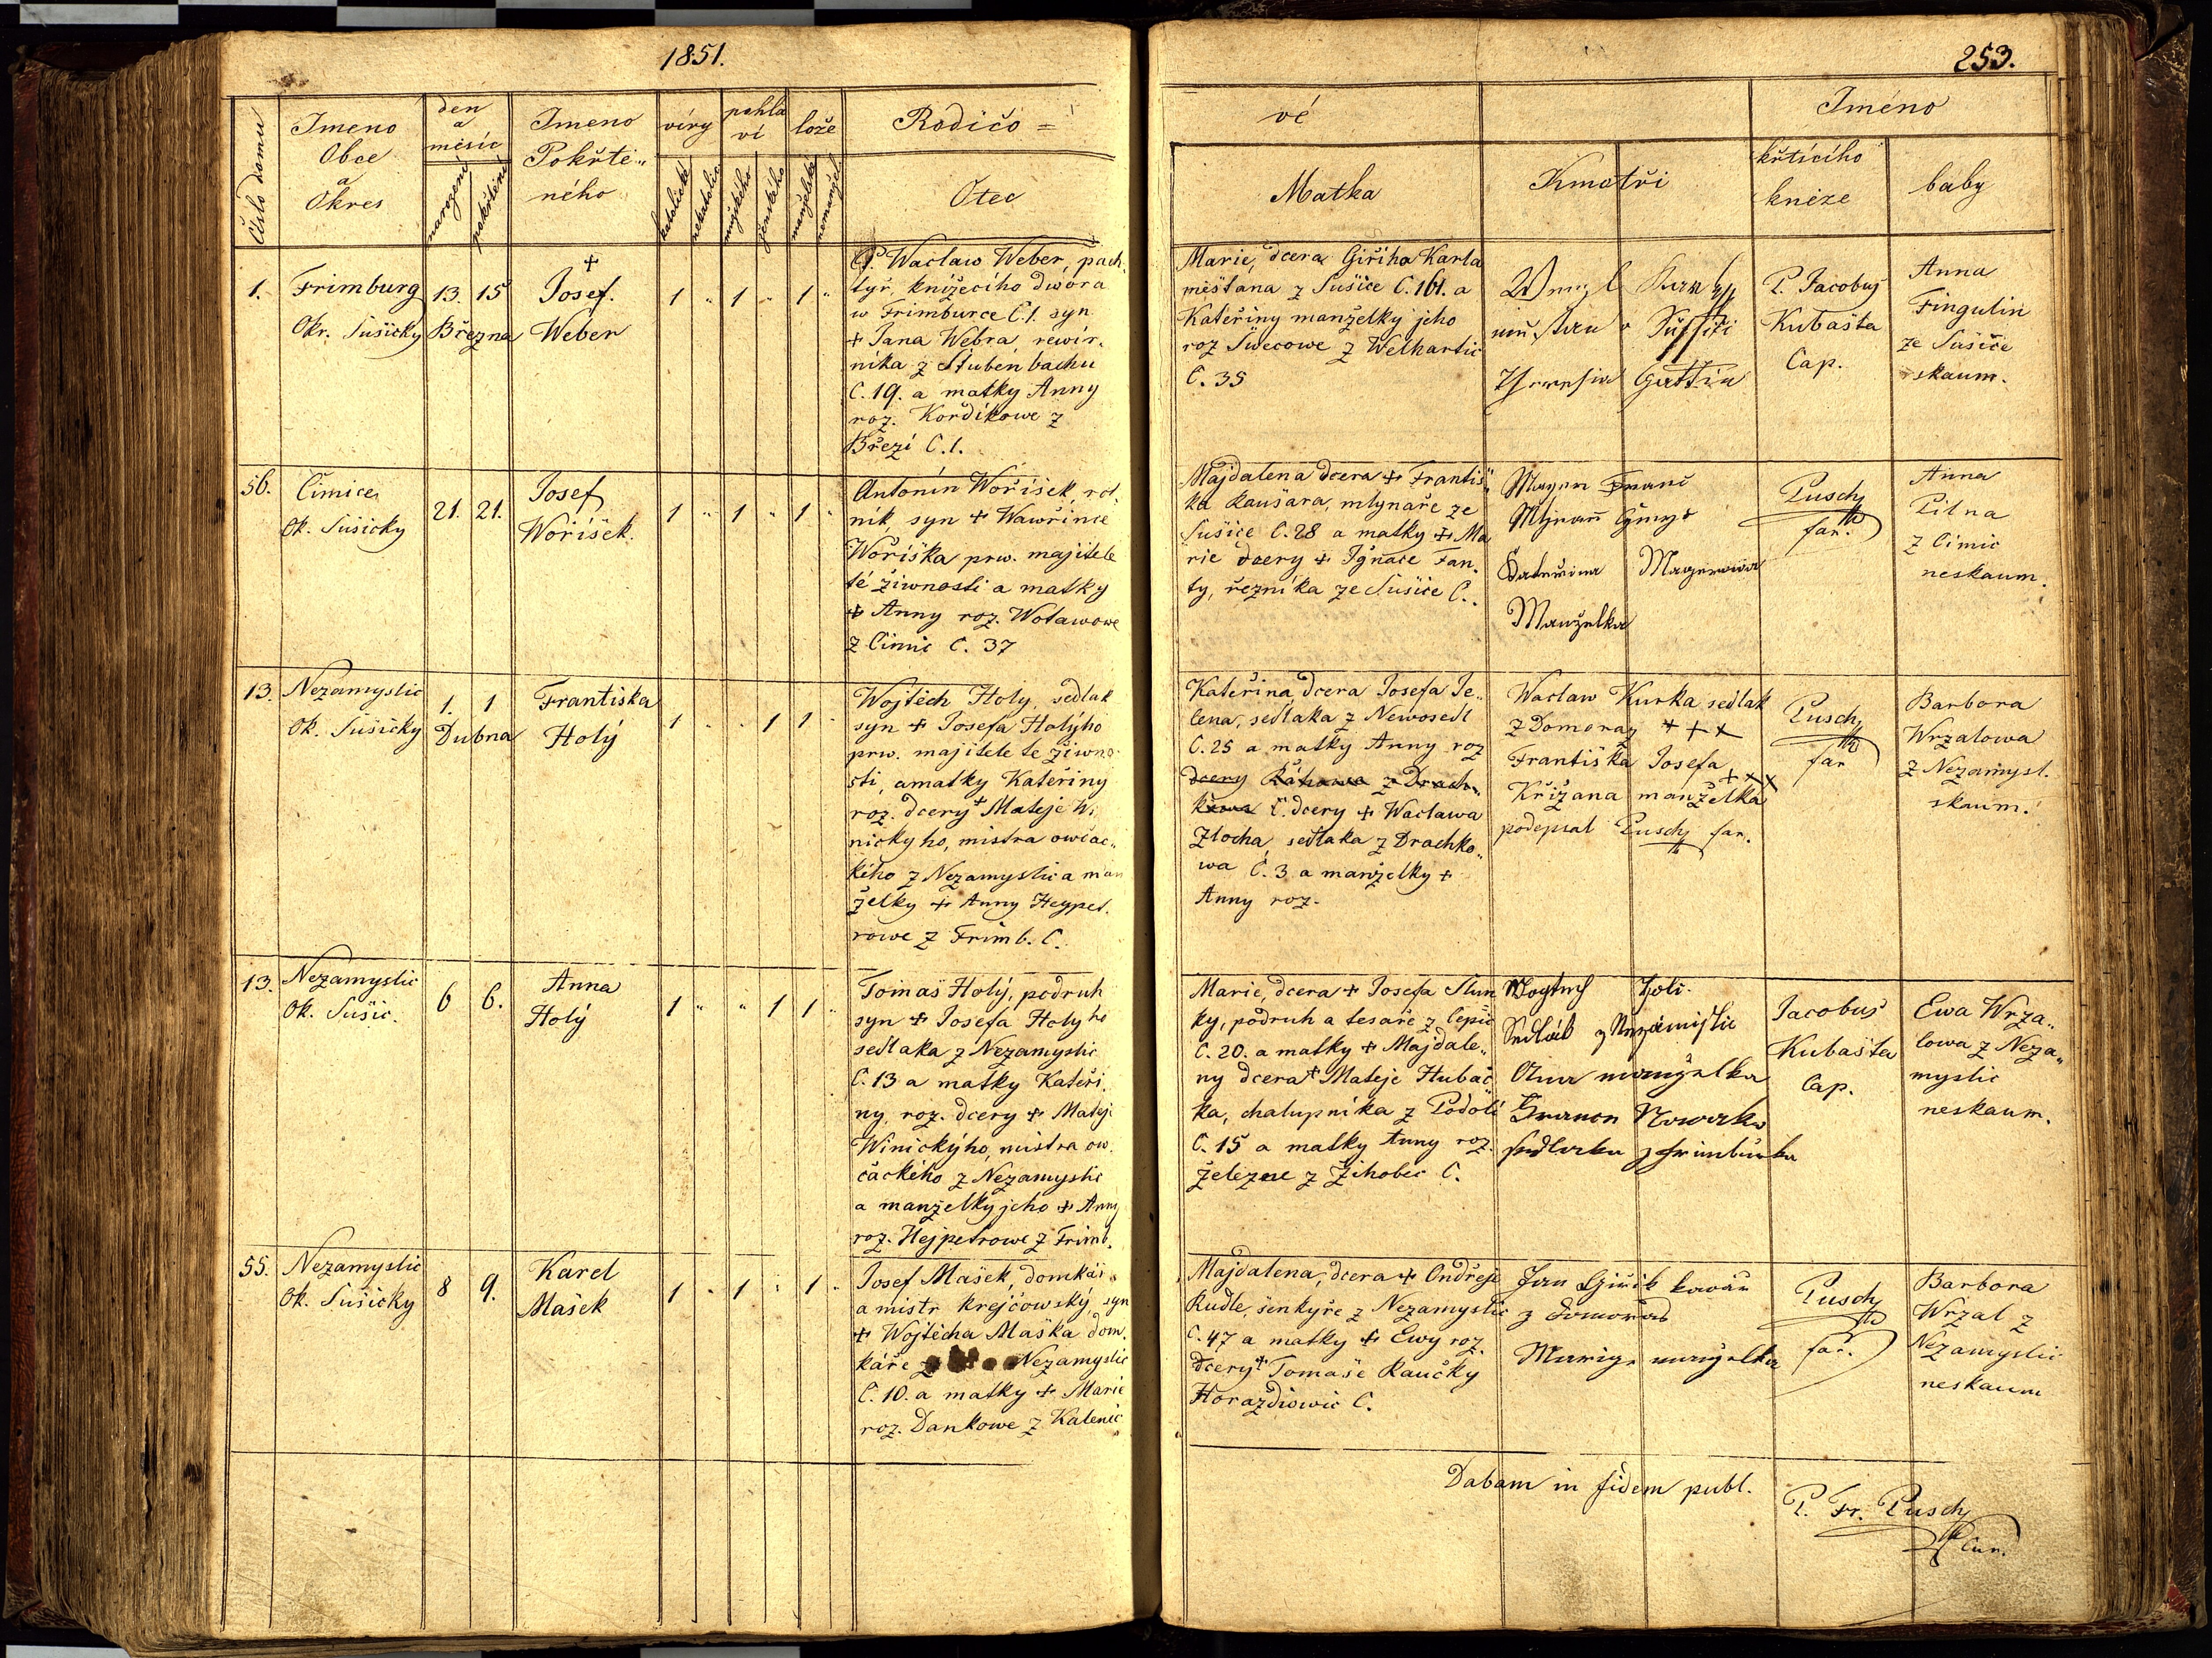 1851.
253.
Číslo domu
Jmeno
Obce
a
Okres
den
a
měsíc
narození
pokřtění
Jmeno
Pokřtě„
ného
víry
katolické
nekatolic
pohla
ví
mužského
ženského
lože
manželské
nemanžel
Rodičo =
Otec
vé
Matka
Kmotři
Jméno
křtícího
kněze
baby
1.
Frimburg
Okr. Sušicky
13. 15
Března
+
Josef.
Weber
1 „ 1 „ 1 „
P. Waclaw Weber, pach„
tyř, knížecího dwora
w Frimburce C.1. syn
+ Jana Webra, rewír„
níka z Stubenbachu
C. 19. a matky Anny
roz. Kordikowe z
Březí C. 1.
Marie, dcera Giřiho Karla
měštana z Sušice C. 161. a
Kateřiny manželky jeho
roz Šwecowe z Welhartic
C. 35
P. Jacobus
Kubašta
Cap.
Anna
Fingulin
ze Sušice
skaum.
56.
Čimice
Ok. Sušicky
21. 21.
Josef
Wořišek.
1 „ 1 „ 1 „
Antonín Wořišek, rol„
nik, syn + Wawřince
Wořiška prw. majitele
té žiwnosti a matky
+ Anny roz. Wotawowe
z Cimic C. 37
Majdalena dcera + Františ„
ka Kaušara, mlynaře ze
Sušice C. 28 a matky + Ma
rie dcery + Ignace Fan„
ty, řezníka ze Sušice C..
Mayer Franc
Kateřina Mayerowa
Manželka
Pusch
far.
Anna
Pilna
z Cimic
neskaum.
13.
Nezamyslic
Ok. Sušicky
1. 1
Dubna
Frantiska
Holý
1 „ „ 1 1 „
Wojtěch Holy, sedlak
syn + Josefa Holýho
prw. majitele te žiwno
sti, a matky Kateřiny
roz. dcery + Mateje Wi
nickyho, mistra owčac„
kého z Nezamyslic a man
želky + Anny Heypet.
rowe z Frimb. C.
Kateřina, dcera Josefa Je„
lena, sedlaka z Newosedl
C. 25 a matky Anny roz
dcery z Drach„
kowa C. dcery + Waclawa
Zlocha, sedlaka z Drachko„
wa C. 3 a manželky +
Anny roz.
Waclaw Kurka sedlak
z Domoraz + + +
Františka Josefa
Křížana manželka + + +
podepsal Pusch far.
Pusch
far
Barbora
Wrzalowa
z Nezamysl.
skaum.
13.
Nezamyslic
Ok. Sušic.
6 6.
Anna
Holý
1 „ „ 1 1 „
Tomaš Holý, podruh
syn + Josefa Holyho
sedlaka z Nezamyslic
C. 13 a matky Kateři„
ny, roz. dcery + Mateje
Winickýho, mistra ow„
čackého z Nezamyslic
a manželky jeho + Anny
roz. Hejpetrowe z Frimb.
Marie, dcera + Josefa Slun
ky, podruh a tesaře z Cepic
C. 20. a matky + Majdale„
ny dcera + Mateje Hubač
ka, chalupníka z Podolí
C. 15 a matky Anny roz.
Železne z Žihobec C.
Wogtech Holi.
Sedlák z Nezámislic
Anna manželka
Nowak
z frimburku
Jacobus
Kubašta
Cap.
Ewa Wrza„
lowa z Neza„
myslic
neskaum.
55.
Nezamyslic
Ok. Sušicky
8 9.
Karel
Mašek
1 „ 1 „ 1 „
Josef Mašek, domkář„
a mistr krejčowský, syn
+ Wojtěcha Maška dom„
káře z Nezamyslic
C. 10. a matky + Marie
roz. Dankowe z Kalenic
Majdalena, dcera + Ondřeje
Rudle, šenkyře z Nezamyslic
C. 47 a matky + Ewy roz.
dcery + Tomaše Raučky
Horazdiowic C.
Jan Jiřik kowář
z Domoraz
Marige manželka
Pusch
far.
Barbora
Wrzal z
Nezamyslic
neskaum
Dabam in fidem publ.
P. Fr. Pusch
Cur.